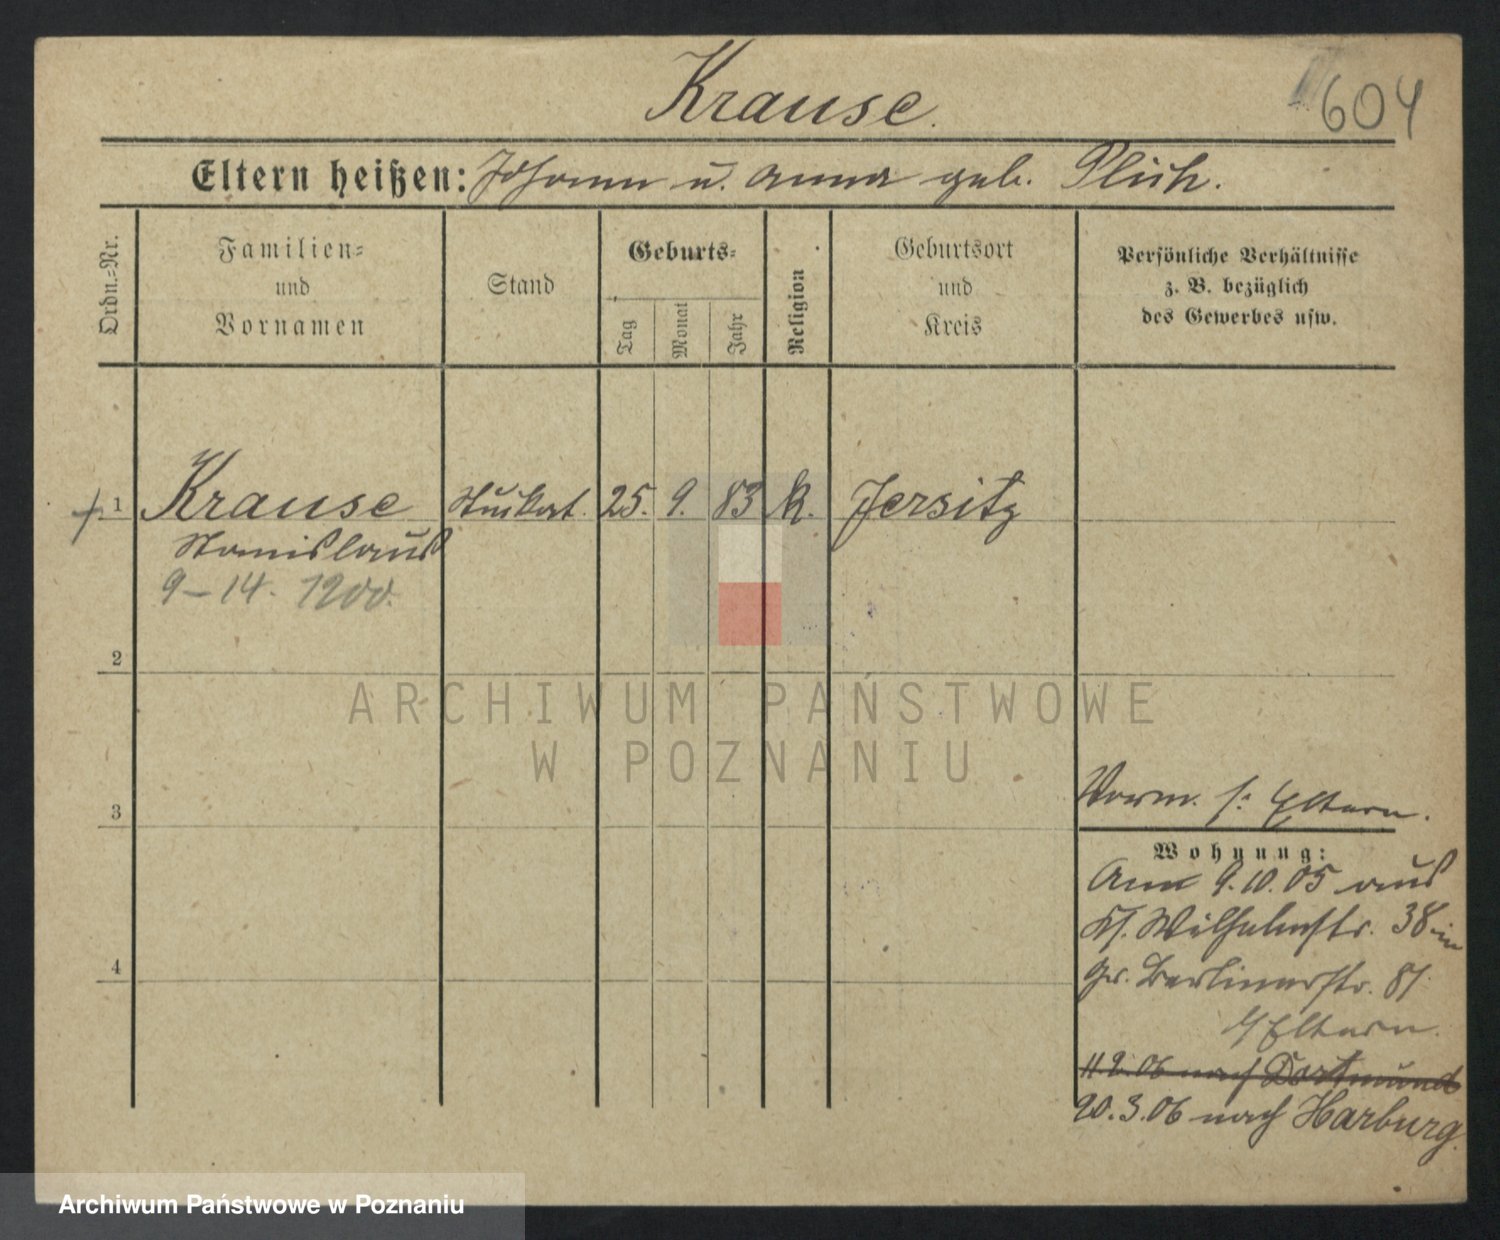 Krause.
604
Eltern heißen: Johann u. Anna geb. Plich.
Ordn.-Nr.
Familien-
und
Vornamen
Stand
Geburts-
Tag
Monat
Jahr
Religion
Geburtsort
und
Kreis
Persönliche Verhältnisse
z. B. bezüglich
des Gewerbes usw.
1 Krause Stuckat. 25. 9. 83 k. Jersitz
Stanislaus
9-14. 1200.
2
ARCHIWUM PAŃSTWOWE
W POZNANIU
3
Verm. s: Eltern.
Wohnung:
Am 9.10.05 aus
Kl. Wilhelmstr. 38 in
Gr. Berlinerstr. 81
4
b/Eltern.
11.2.06 nach Dortmund
20.3.06 nach Harburg.
Archiwum Państwowe w Poznaniu